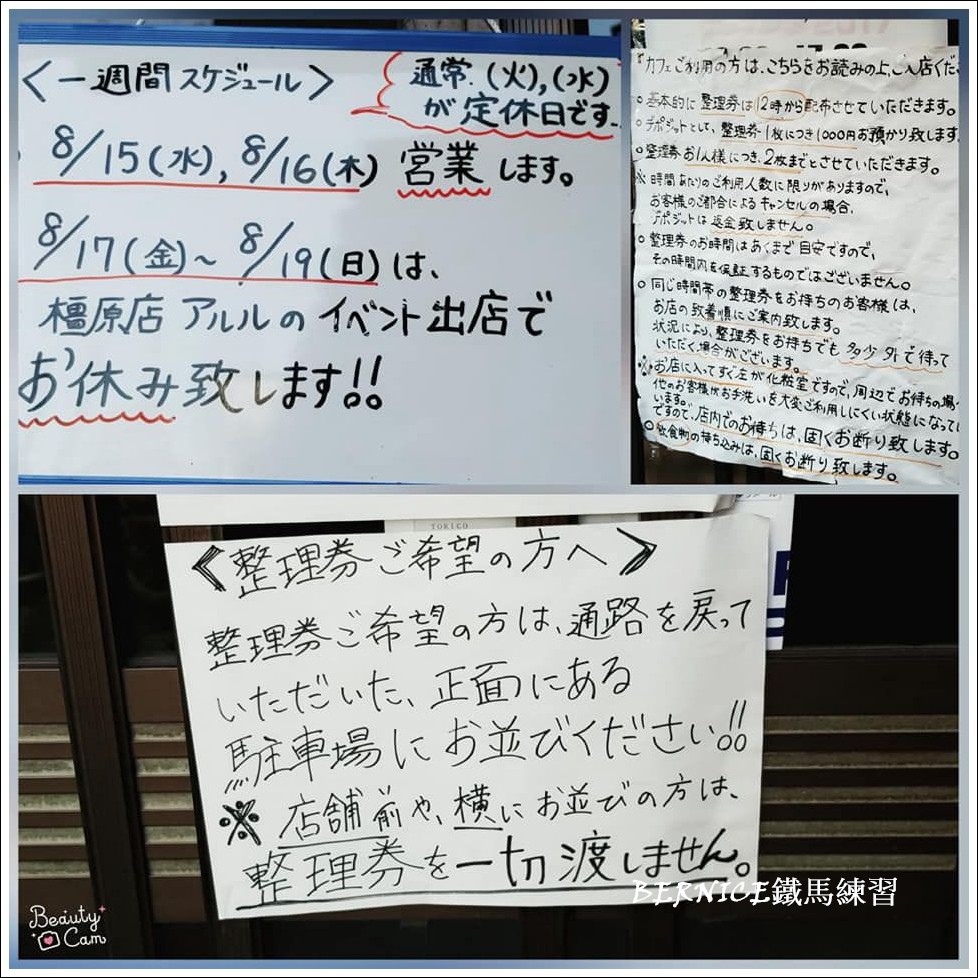 ＜一週間スケジュール＞
通常、(火)，(水)
が定休日です。
8/15(水)，8/16(木) 営業します。
8/17(金)～8/19(日)は、
橿原店 アルルのイベント出店で
お休み致します!!
カフェご利用の方は、こちらをお読みの上、ご入店くだ
○基本的に整理券は12時から配布させていただきます。
○デポジットとして、整理券1枚につき1000円お預かり致します
○整理券お1人様につき、2枚までとさせていただきます。
※時間あたりのご利用人数に限りがありますので、
お客様のご都合によるキャンセルの場合、
デポジットは返金致しません。
○整理券のお時間はあくまで目安ですので、
その時間内を保証するものではございません。
○同じ時間帯の整理券をお持ちのお客様は、
お店の到着順にご案内致します。
状況により、整理券をお持ちでも多少外で待って
いただく場合がございます。
※お店に入ってすぐ左が化粧室ですので、周辺でお待ちの場合
他のお客様がお手洗いを大変ご利用しにくい状態になって
います。
ですので、店内でのお待ちは、固くお断り致します。
○飲食物の持ち込みは、固くお断り致します。
TORICO
《整理券ご希望の方へ》
整理券ご希望の方は、通路を戻って
いただいた、正面にある
駐車場にお並びください!!
※店舗前や、横にお並びの方は、
整理券を一切渡しません。
BERNICE鐵馬練習
Beauty
Cam